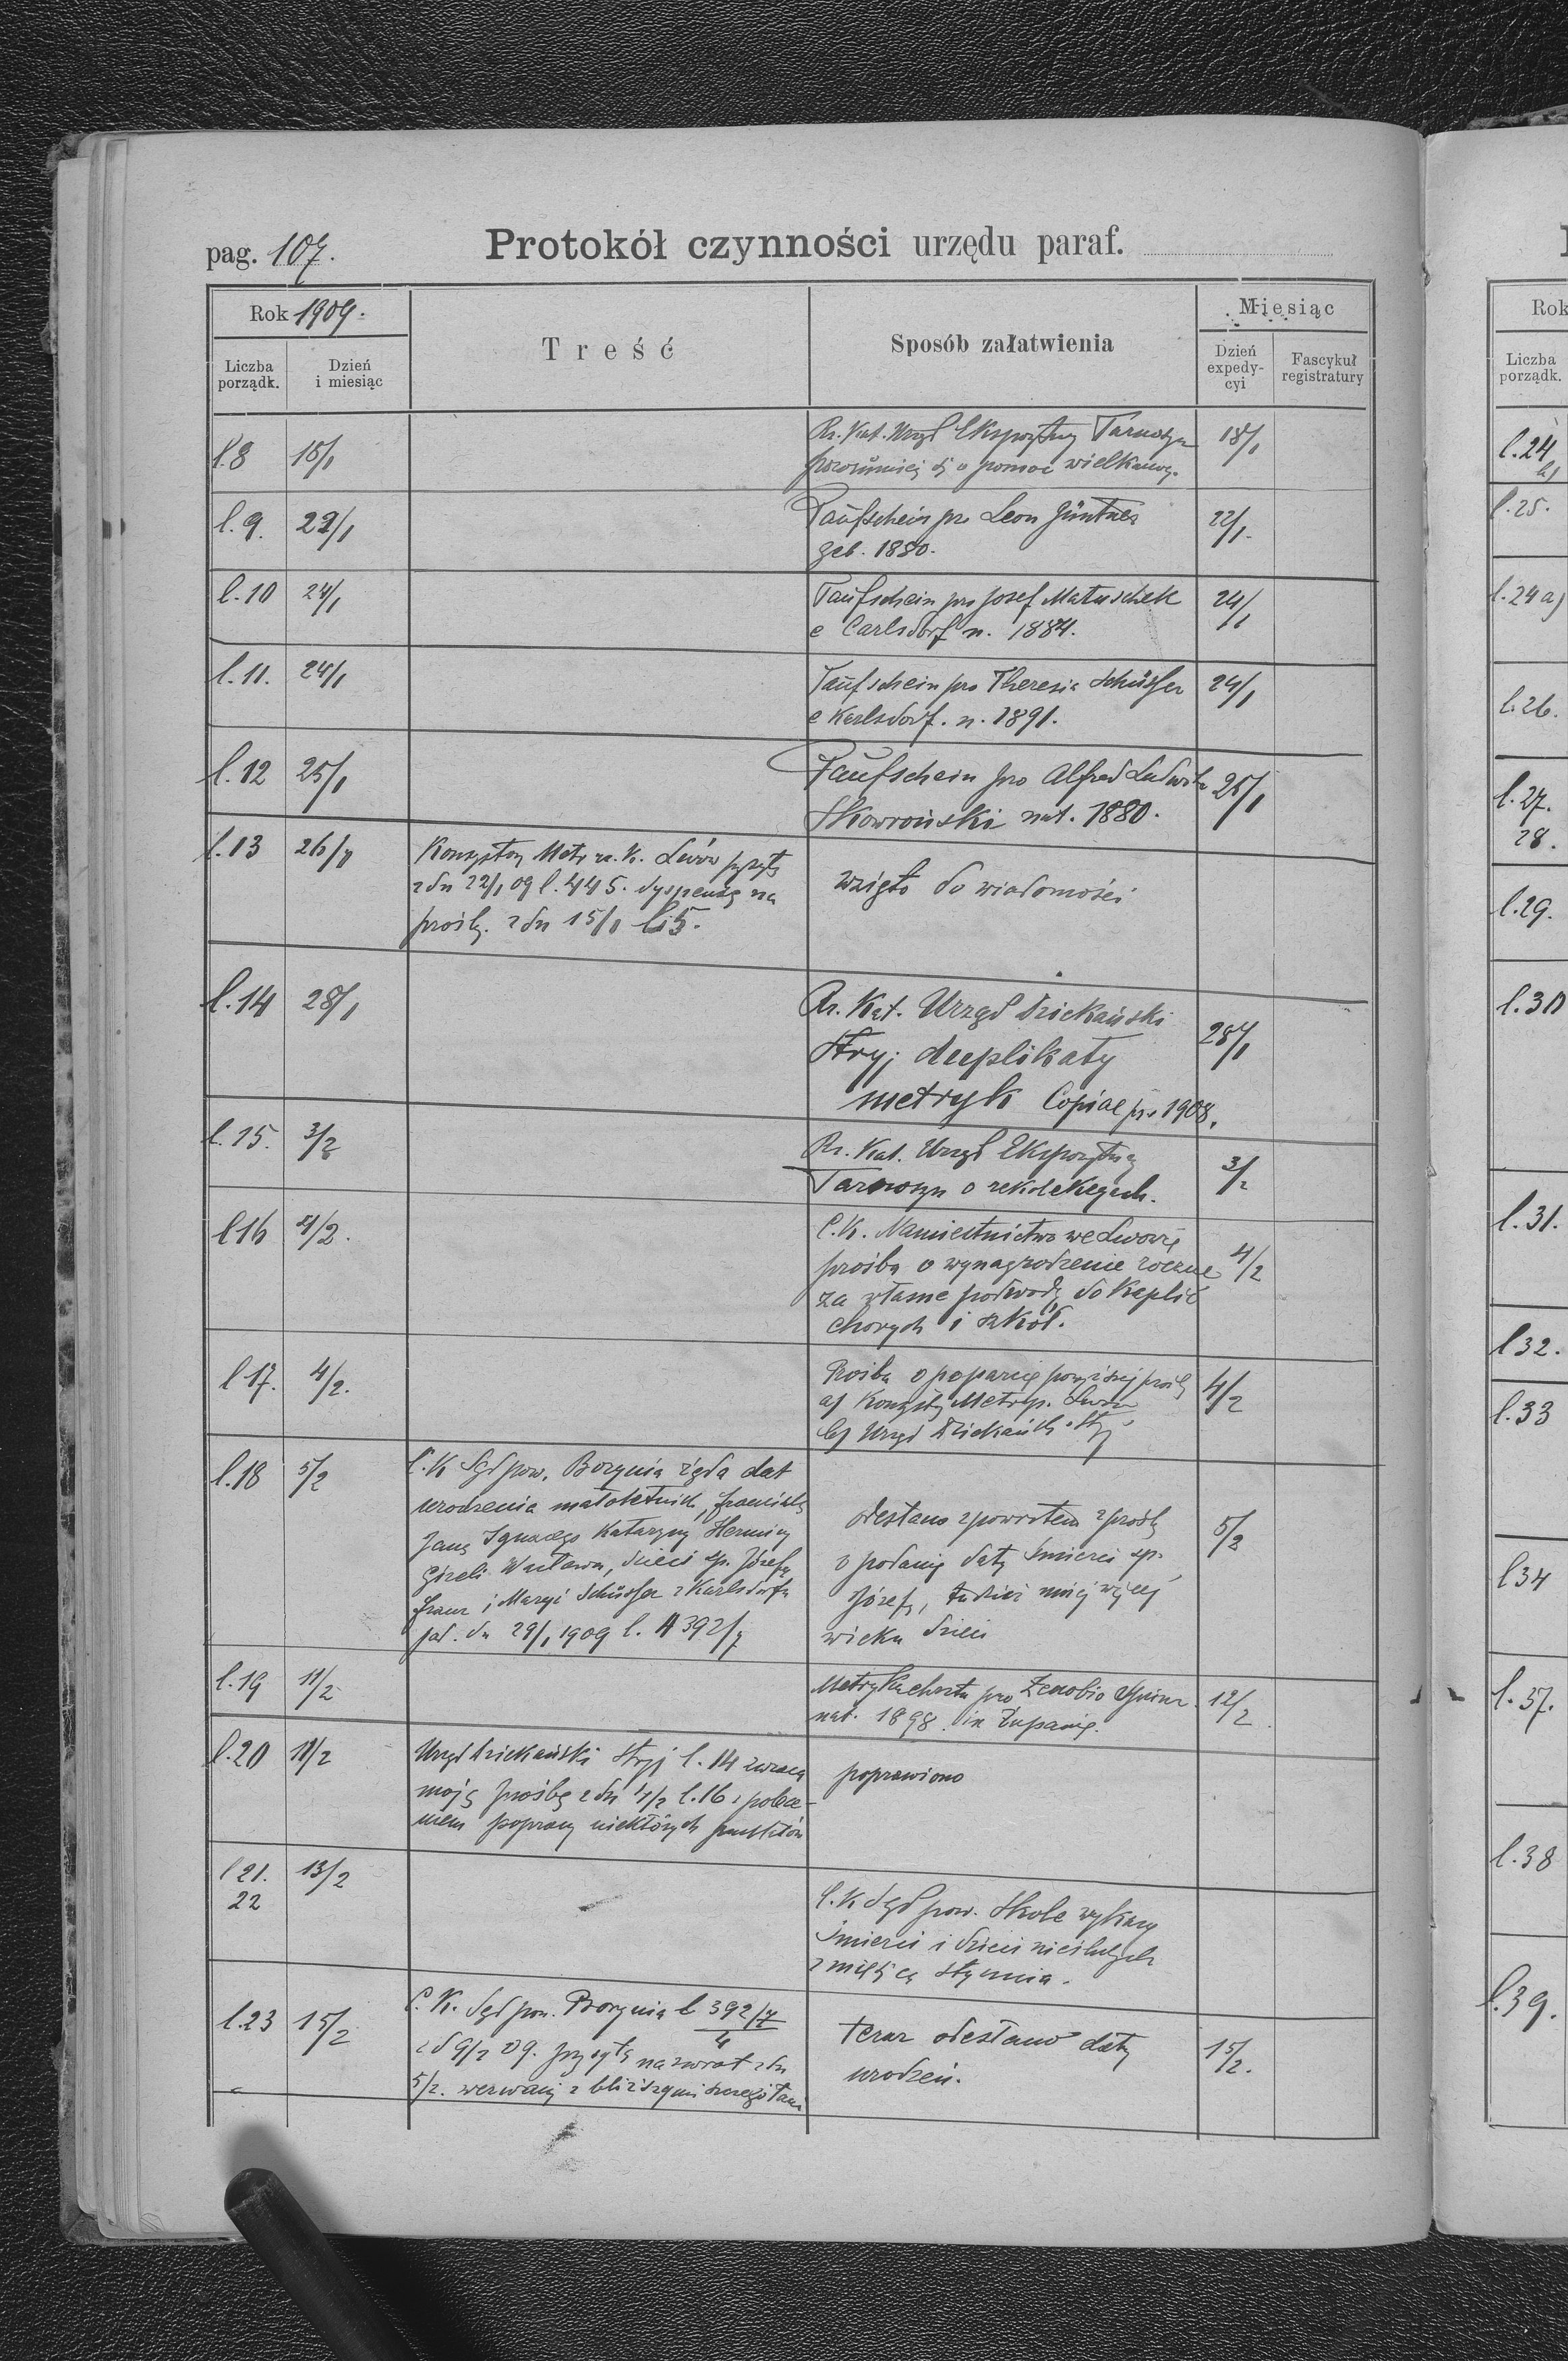 pag. 107.
Protokół czynności urzędu paraf.
Rok 1909.
Liczba porządk.
Dzień i miesiąc
Treść
Sposób załatwienia
Miesiąc
Dzień expedycyi
Fascykuł registratury
l.8 18/1
Rz. Kat. Urząd Ekspozytury
o pomoc wielkanoc.
18/1
l.9. 22/1
Taufschein pro Leon Güntner
geb. 1880.
22/1.
l.10 24/1
Taufschein pro Josef Matuschek
e Carlsdorf n. 1884.
24/1
l.11. 24/1
Taufschein pro Theresia Schüsser
e Karlsdorf. n. 1891.
24/1
l.12 25/1
Taufschein pro Alfred Ludwik
Skowroński nat. 1880.
25/1
l.13 26/1
Konsystorz Metr rz. k. Lwów
z dn 22/1 09 l. 445. dyspensę na
prośbę z dn 15/1 l. 5.
wzięto do wiadomości
l.14 28/1
Rz. Kat. Urząd Dziekański
Stryj duplikaty
metryk Copiae pro 1908.
28/1
l.15. 3/2
Rz. Kat. Urząd
o rekolekcyach.
3/2
l16 4/2.
C.K. Namiestnictwo we Lwowie
prośba o wynagrodzenie roczne
za własne podwody do kaplic
chorych i szkół.
4/2
l17. 4/2.
Prośba o poparcie powyższej prośby
a) Konsyst. Metrop. Lwów
b) Urząd Dziekańsk. Stryj
4/2
l.18 5/2
C.K Sąd pow. Borynia żąda dat
urodzenia małoletnich, Franciszki
Jana Ignacego Katarzyny Herminy
Gizeli Wacława, dzieci śp. Józefa
Franz i Maryi Schüsser z Karlsdorfu
29/1 1909 l. 392/7
Odesłano z powrotem z prośbą
o podanie daty śmierci śp.
Józefa, tudzież mniej więcej
wieku dzieci
5/2
l.19 11/2
Metryka chrztu pro Zenobio
nat. 1898. in Żupanie.
12/2
l.20 11/2
Urząd dziekański Stryj l. 14 zwraca
moją prośbę z dn 4/2 l.16 z polece-
niem poprawy niektórych punktów
poprawiono
l 21. 13/2
22
C.K Sąd pow. Skole wykazy
śmierci i dzieci nieślubnych
z miesiąca stycznia.
l.23 15/2
C.K. Sąd pow. Borynia l 392/7
4
z d 9/2 09. przysyła na zwrot z dn
5/2. wezwanie z bliższymi szczegółami
teraz odesłano daty
urodzeń.
15/2.
Rok
Liczba porządk.
l.24
b)
l.25.
l.24 a)
l.26.
l.27.
28.
l.29.
l.30
l.31.
l 32.
l.33
l34
l.37.
l.38
l.39.